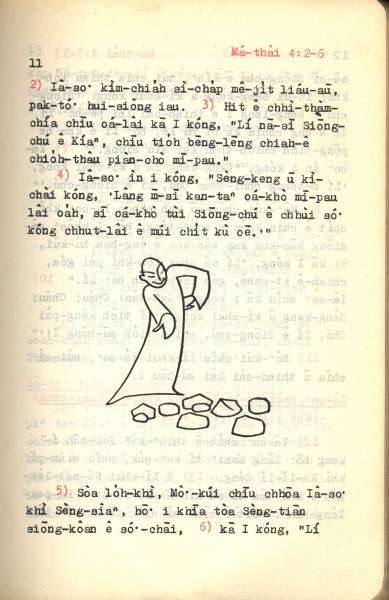 Má-thài 4:2-6
11
2) Iâ-so͘ kìm-chia̍h sì-cha̍p mê-ji̍t liáu-āu,
pak-tó͘ hui-siông iau. 3) Hit ê chhì-thàm-
chiá chiū oá-lâi kā I kóng, "Lí nā-sī Siōng-
chú ê Kiáⁿ, chiū tio̍h bēng-lēng chiah-ê
chio̍h-thâu piàn-chò mī-pau."
4) Iâ-so͘ ìn i kóng, "Sèng-keng ū kì-
chài kóng, 'Lâng m̄-sī kan-taⁿ oá-khò mī-pau
lâi oa̍h, sī oá-khò tùi Siōng-chú ê chhùi só͘
kóng chhut-lâi ê múi chi̍t kù oē.'"
5) Sòa lo̍h-khì, Mô͘-kúi chiū chhōa Iâ-so͘
khì Sèng-siâⁿ, hō͘ i khiā tòa Sèng-tiān
siōng-kôan ê só͘-chāi, 6) kā I kóng, "Lí